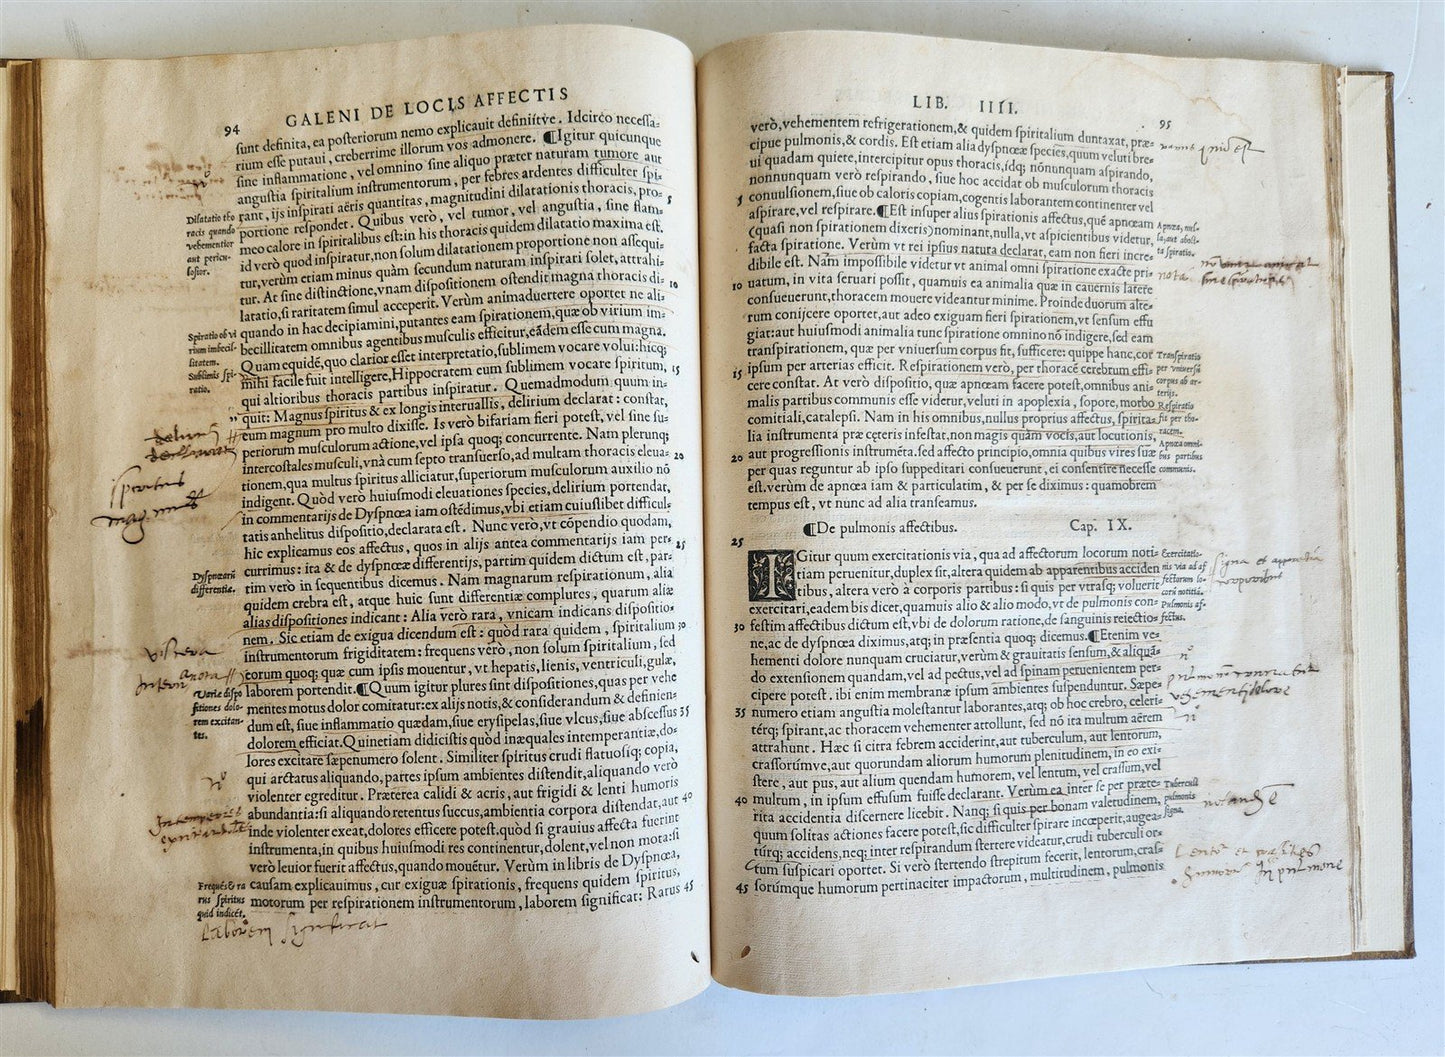 94
GALENI DE LOCIS AFFECTIS
sunt definita, ea posteriorum nemo explicauit definitiue. Idcirco necessa-
rium esse putaui, creberrime illorum vos admonere. ¶Igitur quicunque
sine inflammatione, vel omnino sine aliquo præter naturam tumore aut
angustia spiritalium instrumentorum, per febres ardentes difficulter spi-
rant, ijs inspirati aëris quantitas, magnitudini dilatationis thoracis, pro- 5
portione respondet. Quibus verò, vel tumor, vel angustia, sine flam-
meo calore in spiritalibus est: in his thoracis quidem dilatatio maxima est.
id verò quod inspiratur, non solum dilatationem proportione non assequi-
tur, verùm etiam minus quàm secundum naturam inspirari solet, attrahi-
tur. At sine distinctione, vnam dispositionem ostendit magna thoracis di- 10
latatio, si raritatem simul acceperit. Verùm animaduertere oportet ne ali-
quando in hac decipiamini, putantes eam spirationem, quæ ob virium im-
becillitatem omnibus agentibus musculis efficitur, eãdem esse cum magna.
Quam equidẽ, quo clarior esset interpretatio, sublimem vocare volui: hicq;
mihi facile fuit intelligere, Hippocratem eum sublimem vocare spiritum, 15
qui altioribus thoracis partibus inspiratur. Quemadmodum quum in-
„ quit: Magnus spiritus & ex longis interuallis, delirium declarat: constat,
eum magnum pro multo dixisse. Is verò bifariam fieri potest, vel sine su-
periorum musculorum actione, vel ipsa quoq; concurrente. Nam plerunq;
intercostales musculi, vnà cum septo transuerso, ad multam thoracis eleua- 20
tionem, qua multus spiritus alliciatur, superiorum musculorum auxilio nõ
indigent. Quòd verò huiusmodi eleuationes species, delirium portendat,
in commentarijs de Dyspnœa iam ostẽdimus, vbi etiam cuiuslibet difficul-
tatis anhelitus dispositio, declarata est. Nunc verò, vt cõpendio quodam,
hic explicamus eos affectus, quos in alijs antea commentarijs iam per- 25
currimus: ita & de dyspnœæ differentijs, partim quidem dictum est, par-
tim verò in sequentibus dicemus. Nam magnarum respirationum, alia
quidem crebra est, atque huic sunt differentiæ complures, quarum aliæ
alias dispositiones indicant: Alia verò rara, vnicam indicans dispositio-
nem. Sic etiam de exigua dicendum est: quòd rara quidem, spiritalium 30
instrumentorum frigiditatem: frequens verò, non solum spiritalium, sed
eorum quoq; quæ cum ipsis mouentur, vt hepatis, lienis, ventriculi, gulæ,
laborem portendit. ¶Quum igitur plures sint dispositiones, quas per vehe
mentes motus dolor comitatur: ex alijs notis, & considerandum & definien-
dum est, siue inflammatio quædam, siue erysipelas, siue vlcus, siue abscessus 35
dolorem efficiat. Quinetiam didicistis quòd inæquales intemperantiæ, do-
lores excitare sæpenumero solent. Similiter spiritus crudi flatuosiq; copia,
qui arctatus aliquando, partes ipsum ambientes distendit, aliquando verò
violenter egreditur. Præterea calidi & acris, aut frigidi & lenti humoris
abundantia: si aliquando retentus succus, ambientia corpora distendat, aut 40
inde violenter exeat, dolores efficere potest. quòd si grauius affecta fuerint
instrumenta, in quibus huiusmodi res continentur, dolent, vel non mota: si
verò leuior fuerit affectus, quando mouẽtur. Verùm in libris de Dyspnœa,
causam explicauimus, cur exiguæ spirationis, frequens quidem spiritus,
motorum per respirationem instrumentorum, laborem significat: Rarus 45
Dilatatio tho
racis quando
vehementior
aut pericu-
losior.
Spiratio ob vi
rium imbecil-
litatem.
Sublimis spi-
ratio.
Dyspnœarũ
differentia.
Varie dispo
sitiones dolo-
rem excitan-
tes.
Frequẽs & ra
rus spiritus
quid indicẽt.
spiritus
viscera
nota
laborem significat
LIB. IIII.
95
verò, vehementem refrigerationem, & quidem spiritalium duntaxat, præ-
cipue pulmonis, & cordis. Est etiam alia dyspnœæ species, quum veluti bre-
ui quadam quiete, intercipitur opus thoracis, idq; nõnunquam aspirando,
nonnunquam verò respirando, siue hoc accidat ob musculorum thoracis
5 conuulsionem, siue ob caloris copiam, cogentis laborantem continenter vel
aspirare, vel respirare. ¶Est insuper alius spirationis affectus, quẽ apnœam
(quasi non spirationem dixeris) nominant, nulla, vt aspicientibus videtur,
facta spiratione. Verùm vt rei ipsius natura declarat, eam non fieri incre-
dibile est. Nam impossibile videtur vt animal omni spiratione exacte pri-
10 uatum, in vita seruari possit, quamuis ea animalia quæ in cauernis latere
consueuerunt, thoracem mouere videantur minime. Proinde duorum alte-
rum conijcere oportet, aut adeo exiguam fieri spirationem, vt sensum effu
giat: aut huiusmodi animalia tunc spiratione omnino nõ indigere, sed eam
transpirationem, quæ per vniuersum corpus fit, sufficere: quippe hanc, cor
15 ipsum per arterias efficit. Respirationem vero, per thoracẽ cerebrum effi-
cere constat. At verò dispositio, quæ apnœam facere potest, omnibus ani-
malis partibus communis esse videtur, veluti in apoplexia, sopore, morbo
comitiali, catalepsi. Nam in his omnibus, nullus proprius affectus, spirita-
lia instrumenta præ cæteris infestat, non magis quàm vocis, aut locutionis,
20 aut progressionis instrumẽta. sed affecto principio, omnia quibus vires suæ
per quas reguntur ab ipso suppeditari consueuerunt, ei consentire necesse
est. verùm de apnœa iam & particulatim, & per se diximus: quamobrem
tempus est, vt nunc ad alia transeamus.
¶De pulmonis affectibus. Cap. IX.
25
IGitur quum exercitationis via, qua ad affectorum locorum noti-
tiam peruenitur, duplex sit, altera quidem ab apparentibus acciden
tibus, altera verò à corporis partibus: si quis per vtrasq; voluerit
exercitari, eadem bis dicet, quamuis alio & alio modo, vt de pulmonis con-
30 festim affectibus dictum est, vbi de dolorum ratione, de sanguinis reiectio-
ne, ac de dyspnœa diximus, atq; in præsentia quoq; dicemus. ¶Etenim ve-
hementi dolore nunquam cruciatur, verùm & grauitatis sensum, & aliquã-
do extensionem quandam, vel ad pectus, vel ad spinam peruenientem per-
cipere potest. ibi enim membranæ ipsum ambientes suspenduntur. Sæpe-
35 numero etiam angustia molestantur laborantes, atq; ob hoc crebro, celeri-
térq; spirant, ac thoracem vehementer attollunt, sed nõ ita multum aërem
attrahunt. Hæc si citra febrem acciderint, aut tuberculum, aut lentorum,
crassorúmve, aut quorundam aliorum humorum plenitudinem, in eo exi-
stere, aut pus, aut alium quendam humorem, vel lentum, vel crassum, vel
40 multum, in ipsum effusum fuisse declarant. Verùm ea inter se per præte-
rita accidentia discernere licebit. Nanq; si quis per bonam valetudinem,
quum solitas actiones facere potest, sic difficulter spirare incœperit, augea-
túrq; accidens, neq; inter respirandum stertere videatur, crudi tuberculi or-
tum suspicari oportet. Si verò stertendo strepitum fecerit, lentorum, cras-
45 sorúmque humorum pertinaciter impactorum, multitudinem, pulmonis
Apnœa, nul-
la, aut absci-
ta spiratio.
Transpiratio
per vniuersũ
corpus ab ar-
terijs.
Respiratio
fit per tho-
racem.
Apnœa omni-
bus partibus
communis.
Exercitatio-
nis via ad af
fectorum lo-
corũ notitiã.
Pulmonis af-
fectus.
Tuberculi
pulmonis
signa.
quid est
nota
vehementi dolore
in pulmone